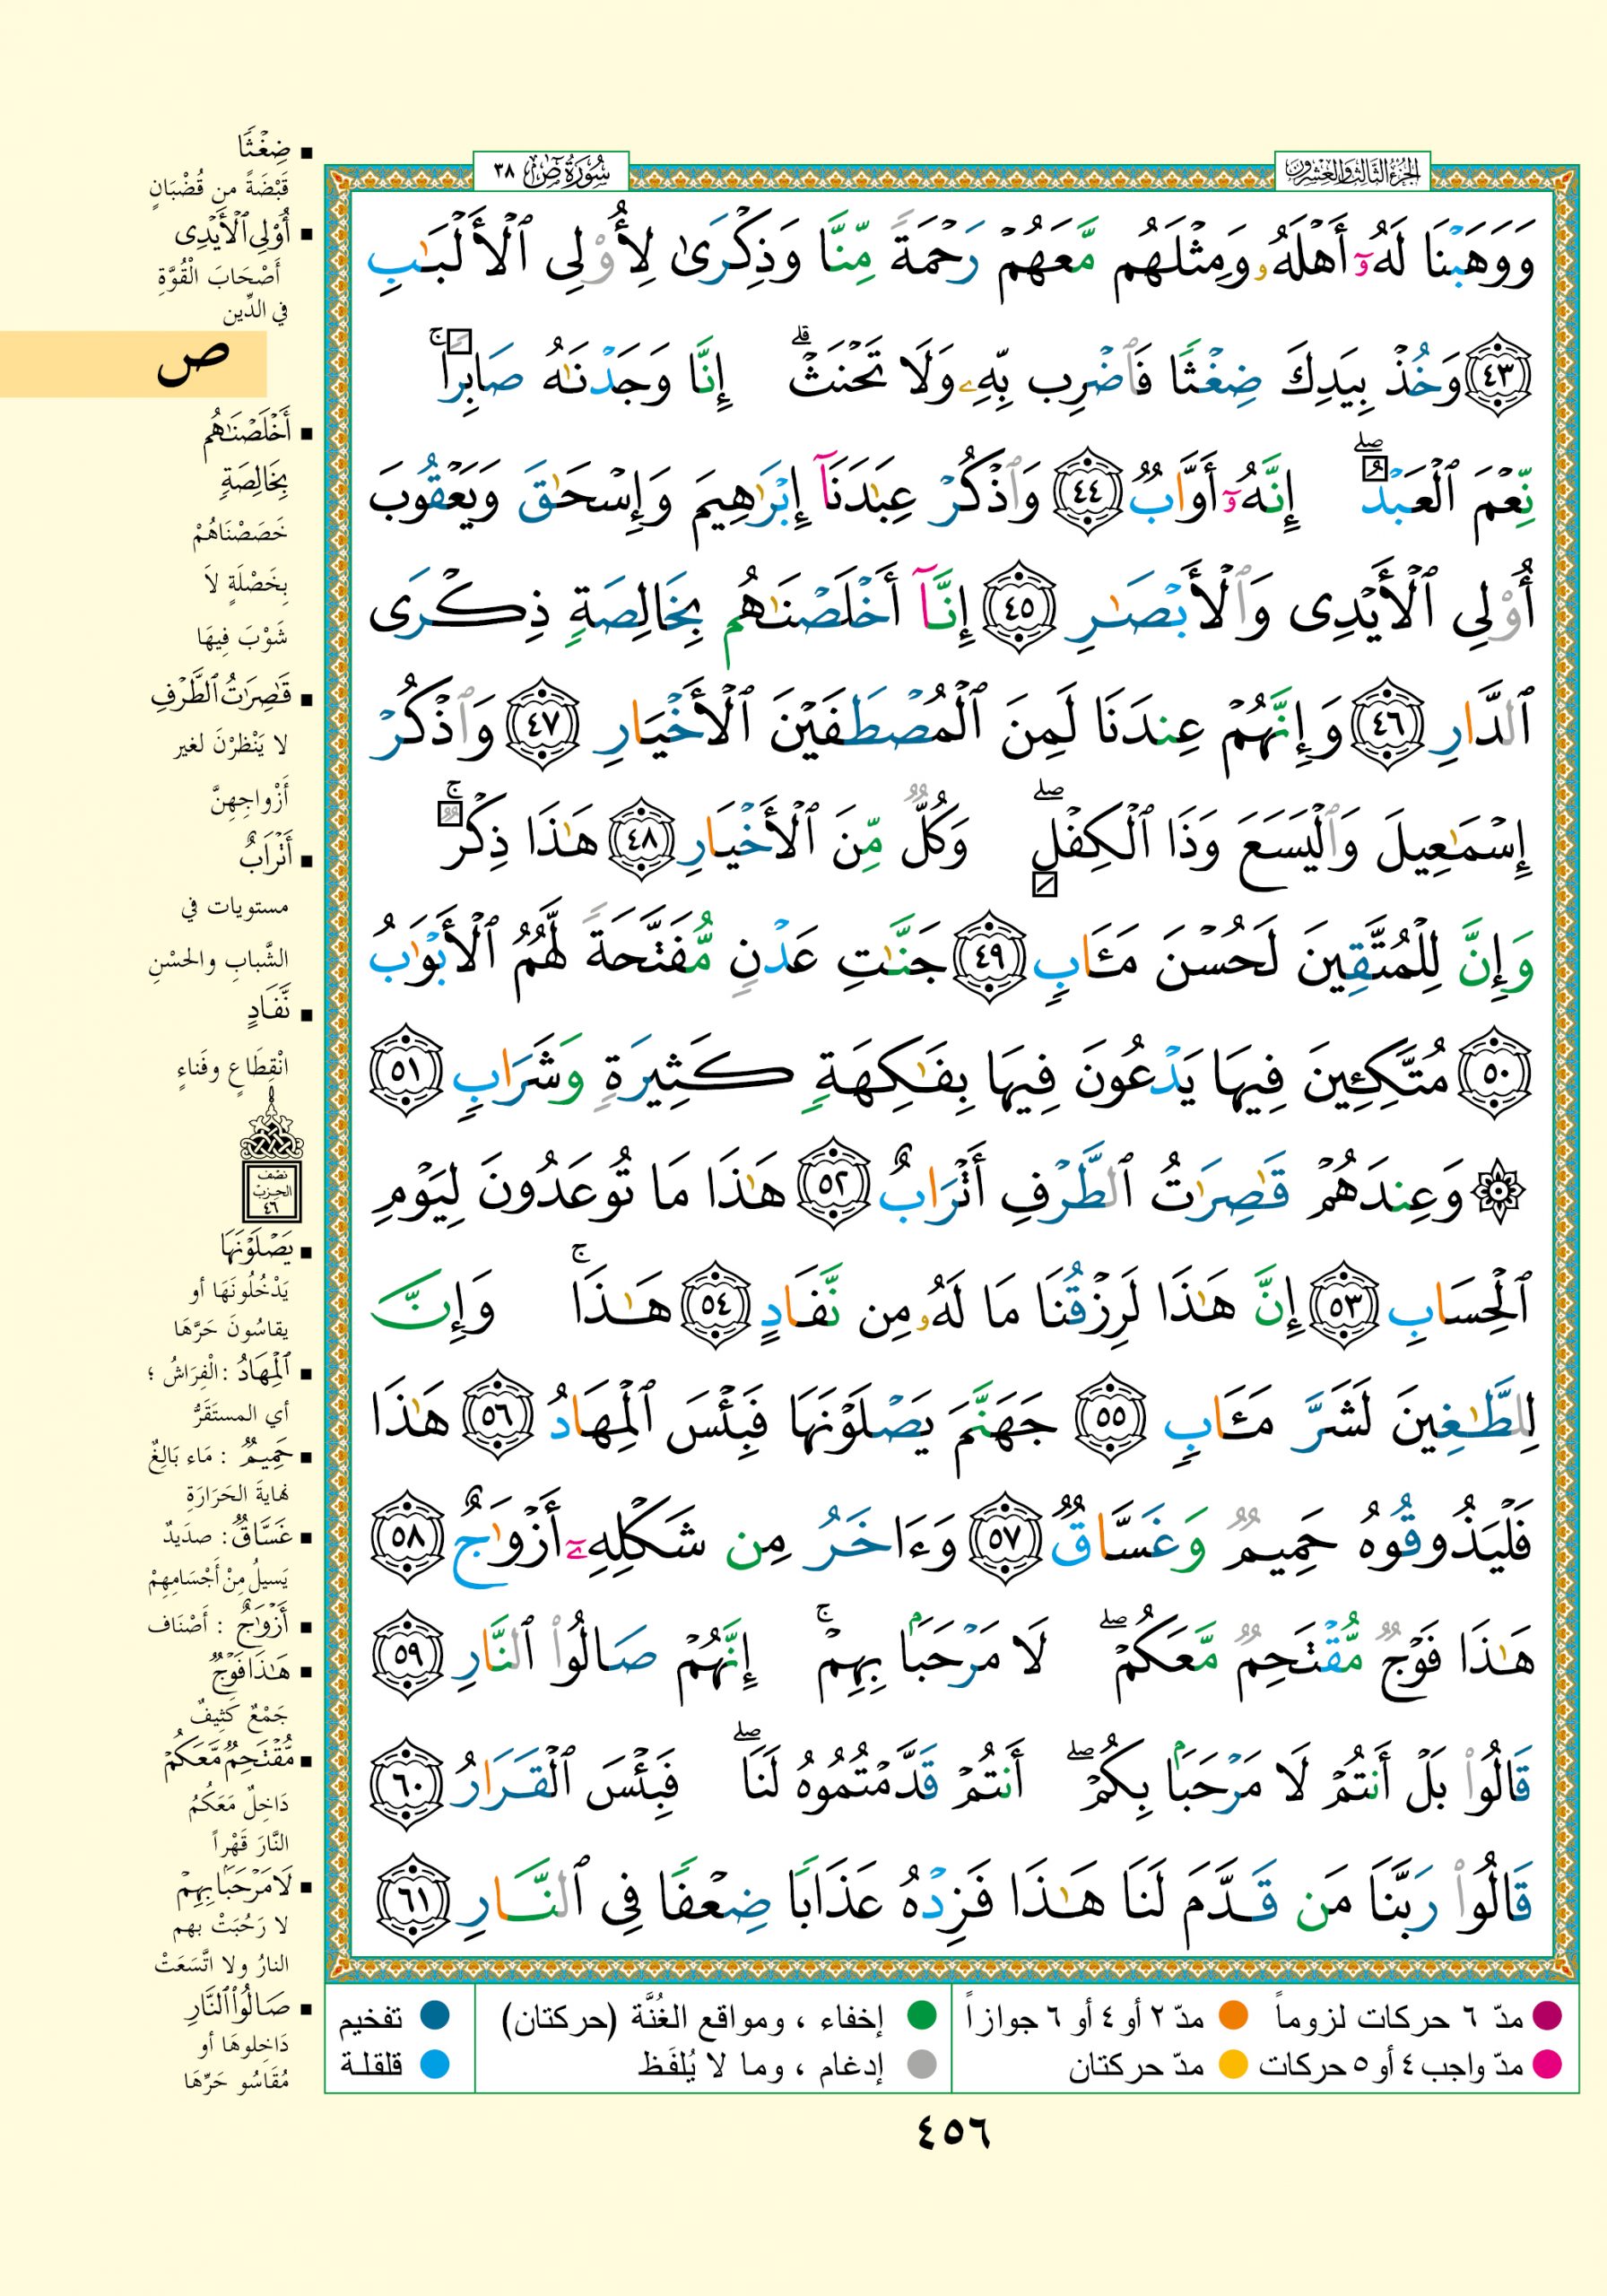 الجزء الثالث والعشرون
سورة ص ٣٨
وَوَهَبْنَا لَهُۥٓ أَهْلَهُۥ وَمِثْلَهُم مَّعَهُمْ رَحْمَةً مِّنَّا وَذِكْرَىٰ لِأُو۟لِى ٱلْأَلْبَـٰبِ
٤٣ وَخُذْ بِيَدِكَ ضِغْثًا فَٱضْرِب بِّهِۦ وَلَا تَحْنَثْ ۗ إِنَّا وَجَدْنَـٰهُ صَابِرًا ۚ
نِّعْمَ ٱلْعَبْدُ ۖ إِنَّهُۥٓ أَوَّابٌ ٤٤ وَٱذْكُرْ عِبَـٰدَنَآ إِبْرَٰهِيمَ وَإِسْحَـٰقَ وَيَعْقُوبَ
أُو۟لِى ٱلْأَيْدِى وَٱلْأَبْصَـٰرِ ٤٥ إِنَّآ أَخْلَصْنَـٰهُم بِخَالِصَةٍ ذِكْرَى
ٱلدَّارِ ٤٦ وَإِنَّهُمْ عِندَنَا لَمِنَ ٱلْمُصْطَفَيْنَ ٱلْأَخْيَارِ ٤٧ وَٱذْكُرْ
إِسْمَـٰعِيلَ وَٱلْيَسَعَ وَذَا ٱلْكِفْلِ ۖ وَكُلٌّ مِّنَ ٱلْأَخْيَارِ ٤٨ هَـٰذَا ذِكْرٌ ۚ
وَإِنَّ لِلْمُتَّقِينَ لَحُسْنَ مَـَٔابٍ ٤٩ جَنَّـٰتِ عَدْنٍ مُّفَتَّحَةً لَّهُمُ ٱلْأَبْوَٰبُ
٥٠ مُتَّكِـِٔينَ فِيهَا يَدْعُونَ فِيهَا بِفَـٰكِهَةٍ كَثِيرَةٍ وَشَرَابٍ ٥١
۞ وَعِندَهُمْ قَـٰصِرَٰتُ ٱلطَّرْفِ أَتْرَابٌ ٥٢ هَـٰذَا مَا تُوعَدُونَ لِيَوْمِ
ٱلْحِسَابِ ٥٣ إِنَّ هَـٰذَا لَرِزْقُنَا مَا لَهُۥ مِن نَّفَادٍ ٥٤ هَـٰذَا ۚ وَإِنَّ
لِلطَّـٰغِينَ لَشَرَّ مَـَٔابٍ ٥٥ جَهَنَّمَ يَصْلَوْنَهَا فَبِئْسَ ٱلْمِهَادُ ٥٦ هَـٰذَا
فَلْيَذُوقُوهُ حَمِيمٌ وَغَسَّاقٌ ٥٧ وَءَاخَرُ مِن شَكْلِهِۦٓ أَزْوَٰجٌ ٥٨
هَـٰذَا فَوْجٌ مُّقْتَحِمٌ مَّعَكُمْ ۖ لَا مَرْحَبًۢا بِهِمْ ۚ إِنَّهُمْ صَالُوا۟ ٱلنَّارِ ٥٩
قَالُوا۟ بَلْ أَنتُمْ لَا مَرْحَبًۢا بِكُمْ ۖ أَنتُمْ قَدَّمْتُمُوهُ لَنَا ۖ فَبِئْسَ ٱلْقَرَارُ ٦٠
قَالُوا۟ رَبَّنَا مَن قَدَّمَ لَنَا هَـٰذَا فَزِدْهُ عَذَابًا ضِعْفًا فِى ٱلنَّارِ ٦١
ضِغْثًا
قَبْضَةً من قُضْبَانٍ
أُو۟لِى ٱلْأَيْدِى
أَصْحَابَ الْقُوَّةِ
في الدِّين
ص
أَخْلَصْنَـٰهُم
بِخَالِصَةٍ
خَصَصْنَاهُمْ
بِخَصْلَةٍ لاَ
شَوْبَ فِيهَا
قَـٰصِرَٰتُ ٱلطَّرْفِ
لا يَنْظرْنَ لغير
أَزْواجِهِنَّ
أَتْرَابٌ
مستويات في
الشَّبابِ والحسْنِ
نَّفَادٍ
انْقِطَاعٍ وفَناءٍ
نصف
الحزب
٤٦
يَصْلَوْنَهَا
يَدْخُلُونَهَا أو
يقاسُونَ حَرَّهَا
ٱلْمِهَادُ : الْفِرَاشُ ؛
أي المستَقَرُّ
حَمِيمٌ : مَاء بَالِغٌ
نهايةَ الحَرَارَةِ
غَسَّاقٌ : صدَيدٌ
يَسيلُ مِنْ أَجْسَامِهِمْ
أَزْوَٰجٌ : أَصْنَاف
هَـٰذَا فَوْجٌ
جَمْعٌ كَثِيفٌ
مُّقْتَحِمٌ مَّعَكُمْ
دَاخِلٌ مَعَكُمُ
النَّارَ قَهْراً
لَا مَرْحَبًۢا بِهِمْ
لا رَحُبَتْ بهم
النارُ ولا اتَّسَعَتْ
صَالُوا۟ ٱلنَّارِ
دَاخِلوهَا أو
مُقَاسُو حَرِّهَا
مدّ ٦ حركات لزوماً
مدّ ٢ أو ٤ أو ٦ جوازاً
إخفاء ، ومواقع الغُنَّة (حركتان)
تفخيم
مدّ واجب ٤ أو ٥ حركات
مدّ حركتان
إدغام ، وما لا يُلفَظ
قلقلة
٤٥٦